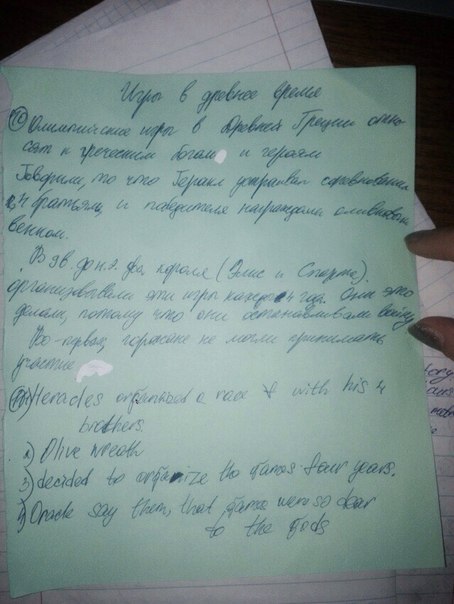 Игры в древнее время
10 Олимпийские игры в Древней Греции отно
сят к греческим богам и героям
Говорили, то что Геракл устраивал соревнования
4 братьям, и победителя награждали оливковым
венком.
В 9 в. до н.э. два короля (Элис и Спарта)
организовывали эти игры каждые 4 года. Они это
делали, потому что они останавливали войну
Во-первых, горожане не могли принимать
участие
Heracles organized a race with his 4
brothers
2) Olive wreath
3) decided to organize the games four years.
4) Oracle say them, that games were so dear
to the gods